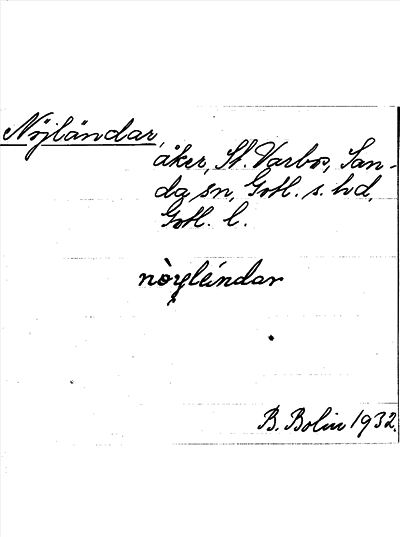 Nöjländar,
åker, St. Varbos, San-
da sn, Gotl. s. hd,
Gotl. l.
nòyléndar
B. Bolin 1932.